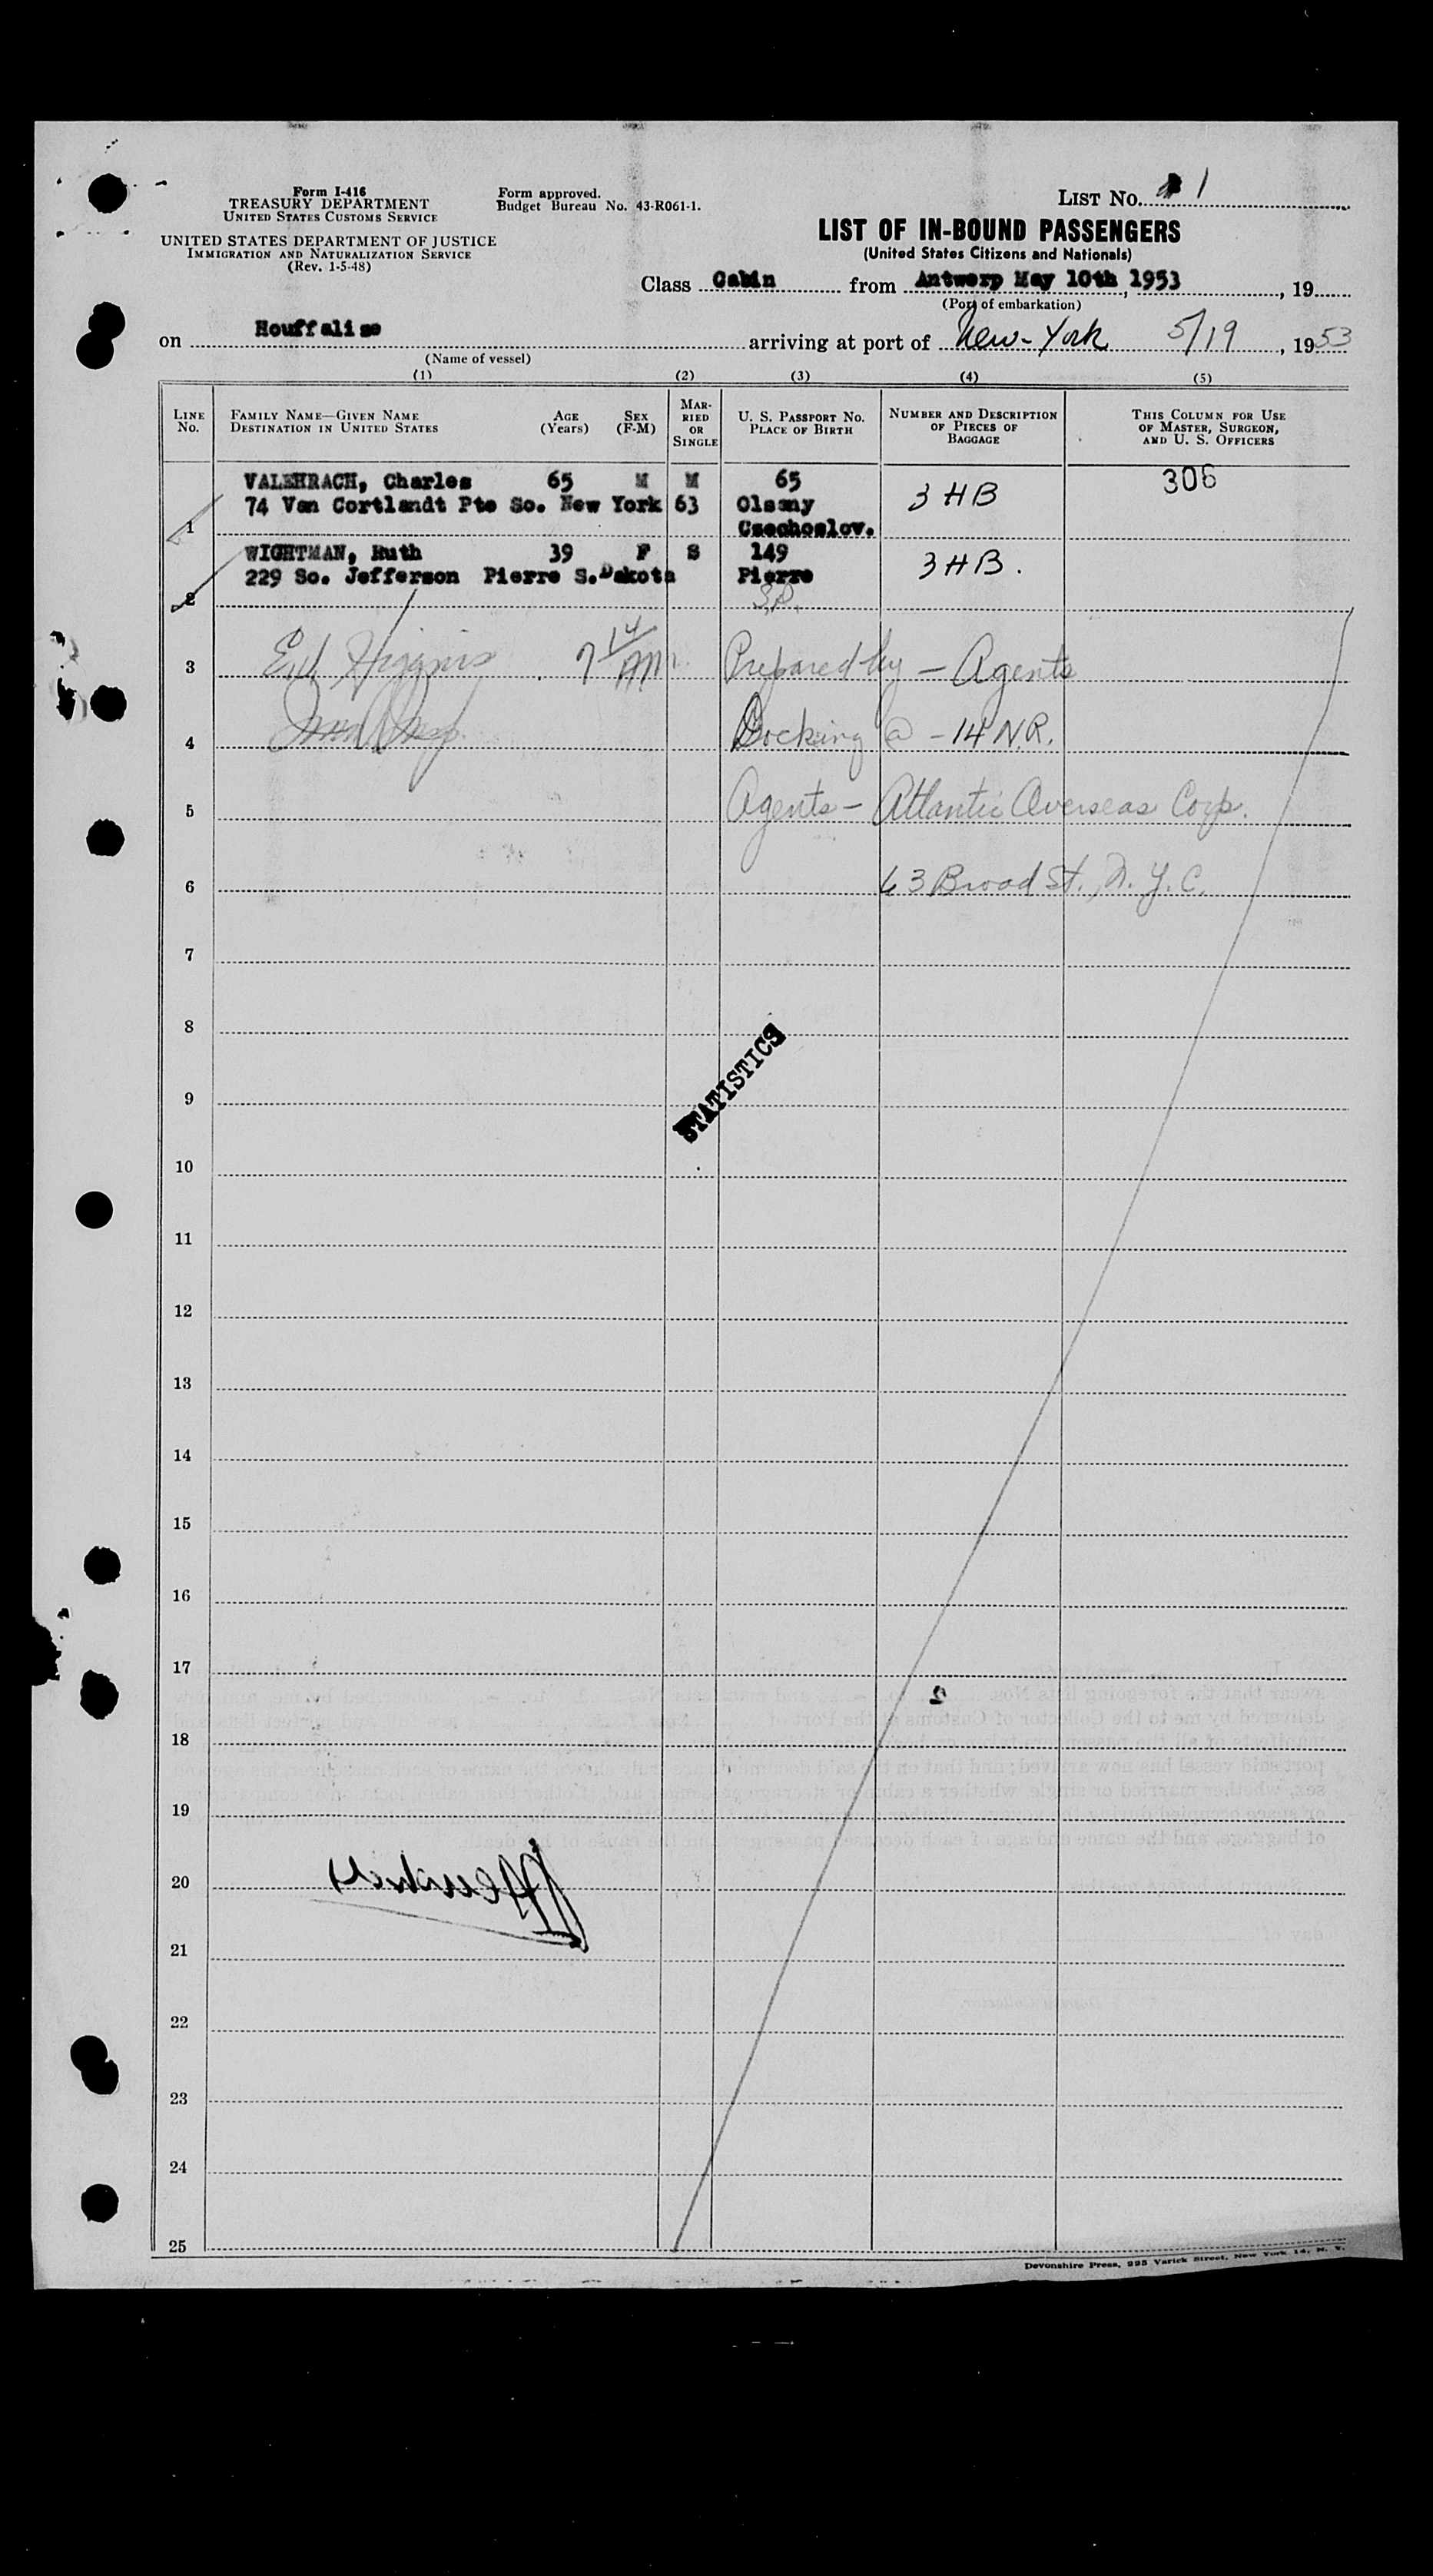 Form I-416
TREASURY DEPARTMENT
UNITED STATES CUSTOMS SERVICE
UNITED STATES DEPARTMENT OF JUSTICE
IMMIGRATION AND NATURALIZATION SERVICE
(Rev. 1-5-48)
Form approved.
Budget Bureau No. 43-R061-1.
LIST No. 1
LIST OF IN-BOUND PASSENGERS
(United States Citizens and Nationals)
Class Cabin from Antwerp May 10th, 1953, 19
(Port of embarkation)
on Houffalise arriving at port of New-York 5/19, 1953
(Name of vessel)
(1) (2) (3) (4) (5)
LINE No. FAMILY NAME—GIVEN NAME DESTINATION IN UNITED STATES AGE (Years) SEX (F-M) MARRIED OR SINGLE U. S. PASSPORT NO. PLACE OF BIRTH NUMBER AND DESCRIPTION OF PIECES OF BAGGAGE THIS COLUMN FOR USE OF MASTER, SURGEON, AND U. S. OFFICERS
VALEHRACH, Charles 65 M M 65 3 HB 306
74 Van Cortlandt Pte So. New York 63 Olsany
1 Czechoslov.
WIGHTMAN, Ruth 39 F S 149 3 HB.
229 So. Jefferson Pierre S.Dakota Pierre
2 S.D.
3 Higgins 7 14 AM Prepared by - Agents
4 Docking @ - 14 N.R.
5 Agents - Atlantic Overseas Corp.
6 63 Broad St., N.Y.C.
7
8
STATISTICS
9
10
11
12
13
14
15
16
17
2
18
19
20
21
22
23
24
25
Devonshire Press, 225 Varick Street, New York 14, N. Y.